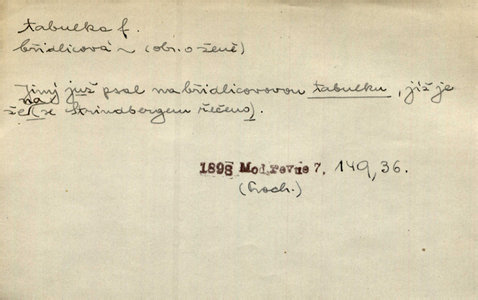 tabulka f.
břidlicová ~ (obr. o ženě)
Jiný již psal na břidlicovovou tabulku, jíž je
žena (se Strindbergem řečeno).
1898 Mod.revue 7, 149, 36.
(Proch.)